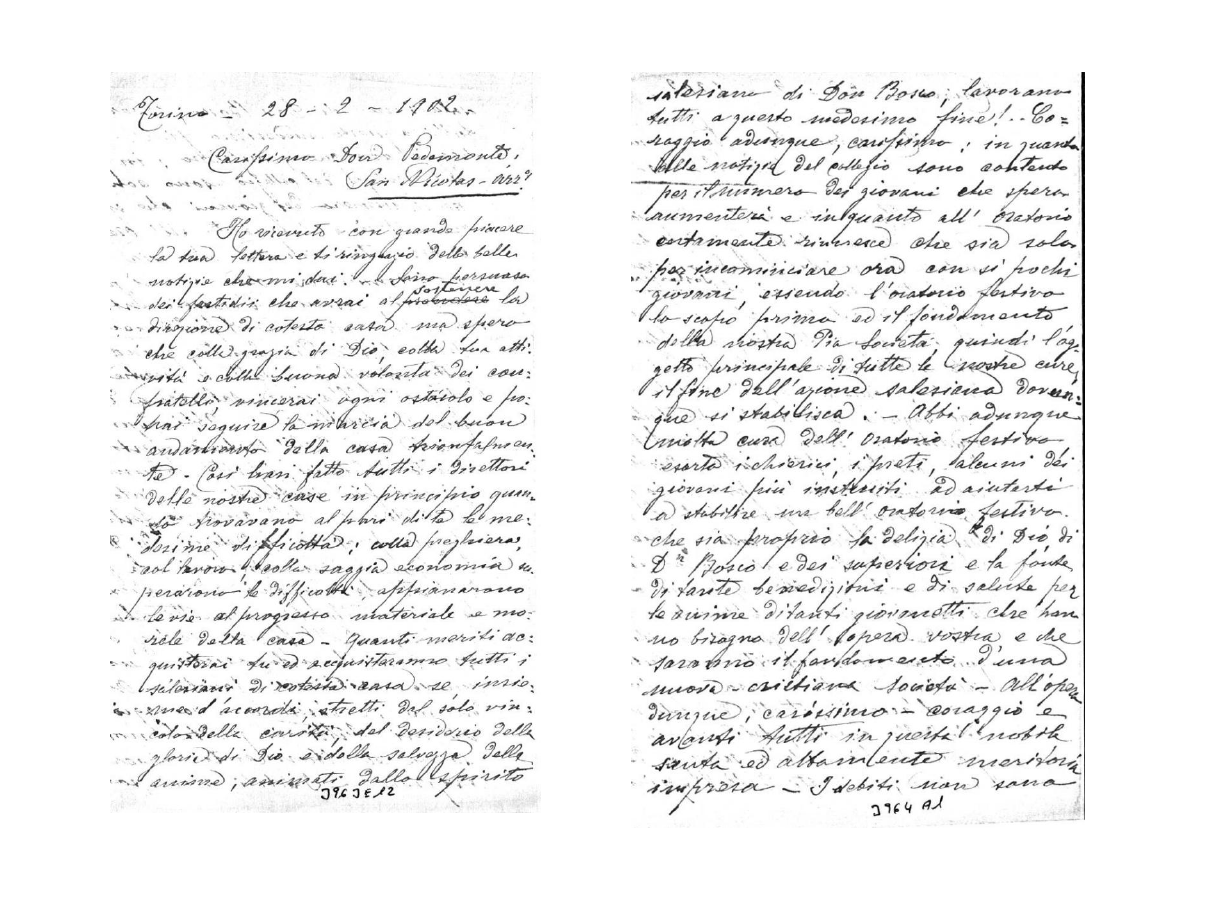 Torino - 28 - 2 - 1902.
Carissimo Don Pedemonte,
San Nicolas - Arr.s
Ho ricevuto con grande piacere
la tua lettera e ti ringrazio delle belle
notizie che mi dai. - Sono persuaso
dei fastidii che avrai al prendere sostenere la
direzione di cotesta casa ma spero
che colla grazia di Dio, colla tua atti:
vità e colla buona volontà dei con:
fratelli vincerai ogni ostacolo e po:
trai seguire la marcia del buon
andamento della casa trionfalmen:
te - Così han fatto tutti i direttori
delle nostre case in principio quan:
do trovavano al pari di te le me:
desime difficoltà; colla preghiera,
col lavoro, colla saggia economia su:
perarono le difficoltà appianarono
le vie al progresso materiale e mo:
rale della casa - Quanti meriti ac:
quisterai tu ed acquisteranno tutti i
salesiani di cotesta casa se insie:
me d'accordo, stretti dal solo vin:
colo della carità, del desiderio della
gloria di Dio e della salvezza delle
anime, animati dallo spirito
J96 JE12
salesiano di Don Bosco, lavorano
tutti a questo medesimo fine! - Co=
raggio adunque, carissimo; in quanto
alle notizie del collegio sono contento
per il numero dei giovani che spero
aumenterà e in quanto all' oratorio
certamente rincresce che sia solo
per incominciare ora con sì pochi
giovani, essendo l'oratorio festivo
lo scopo primo ed il fondamento
della nostra Pia Società quindi l'og:
getto principale di tutte le nostre cure,
il fine dell'azione salesiana dovun:
que si stabilisca. - Abbi adunque
molta cura dell' oratorio festivo
esorta i chierici, i preti, alcuni dei
giovani più instruiti ad aiutarti
a stabilire un bell' oratorio festivo
che sia proprio la delizia di Dio di
D.n Bosco e dei superiori e la fonte
di tante benedizioni e di salute per
le anime di tanti giovinetti che han
no bisogno dell' opera vostra e che
saranno il fondamento d'una
nuova cristiana società - All'opera
dunque, carissimo - coraggio e
avanti tutti in questa nobile
santa ed altamente meritoria
impresa - I debiti non sono
J964 A1